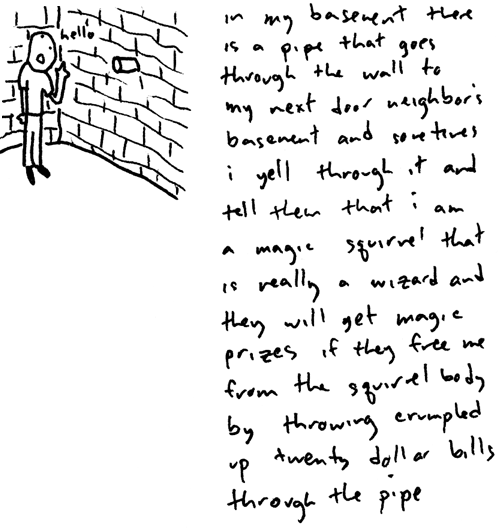 hello
in my basement there
is a pipe that goes
through the wall to
my next door neighbors
basement and sometimes
i yell through it and
tell them that i am
a magic squirrel that
is really a wizard and
they will get magic
prizes if they free me
from the squirrel body
by throwing crumpled
up twenty dollar bills
through the pipe